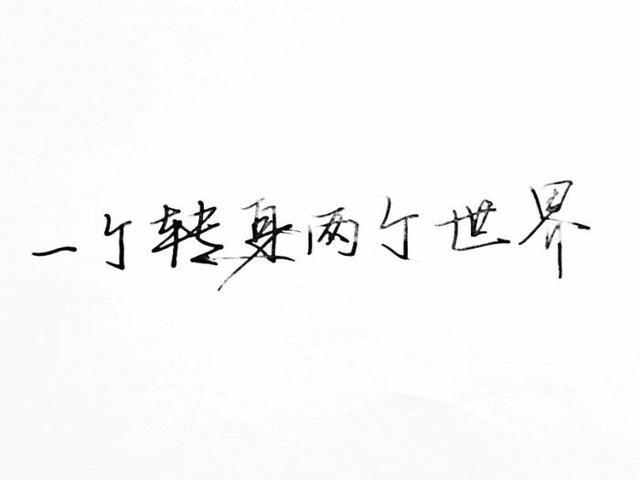 一个转身两个世界